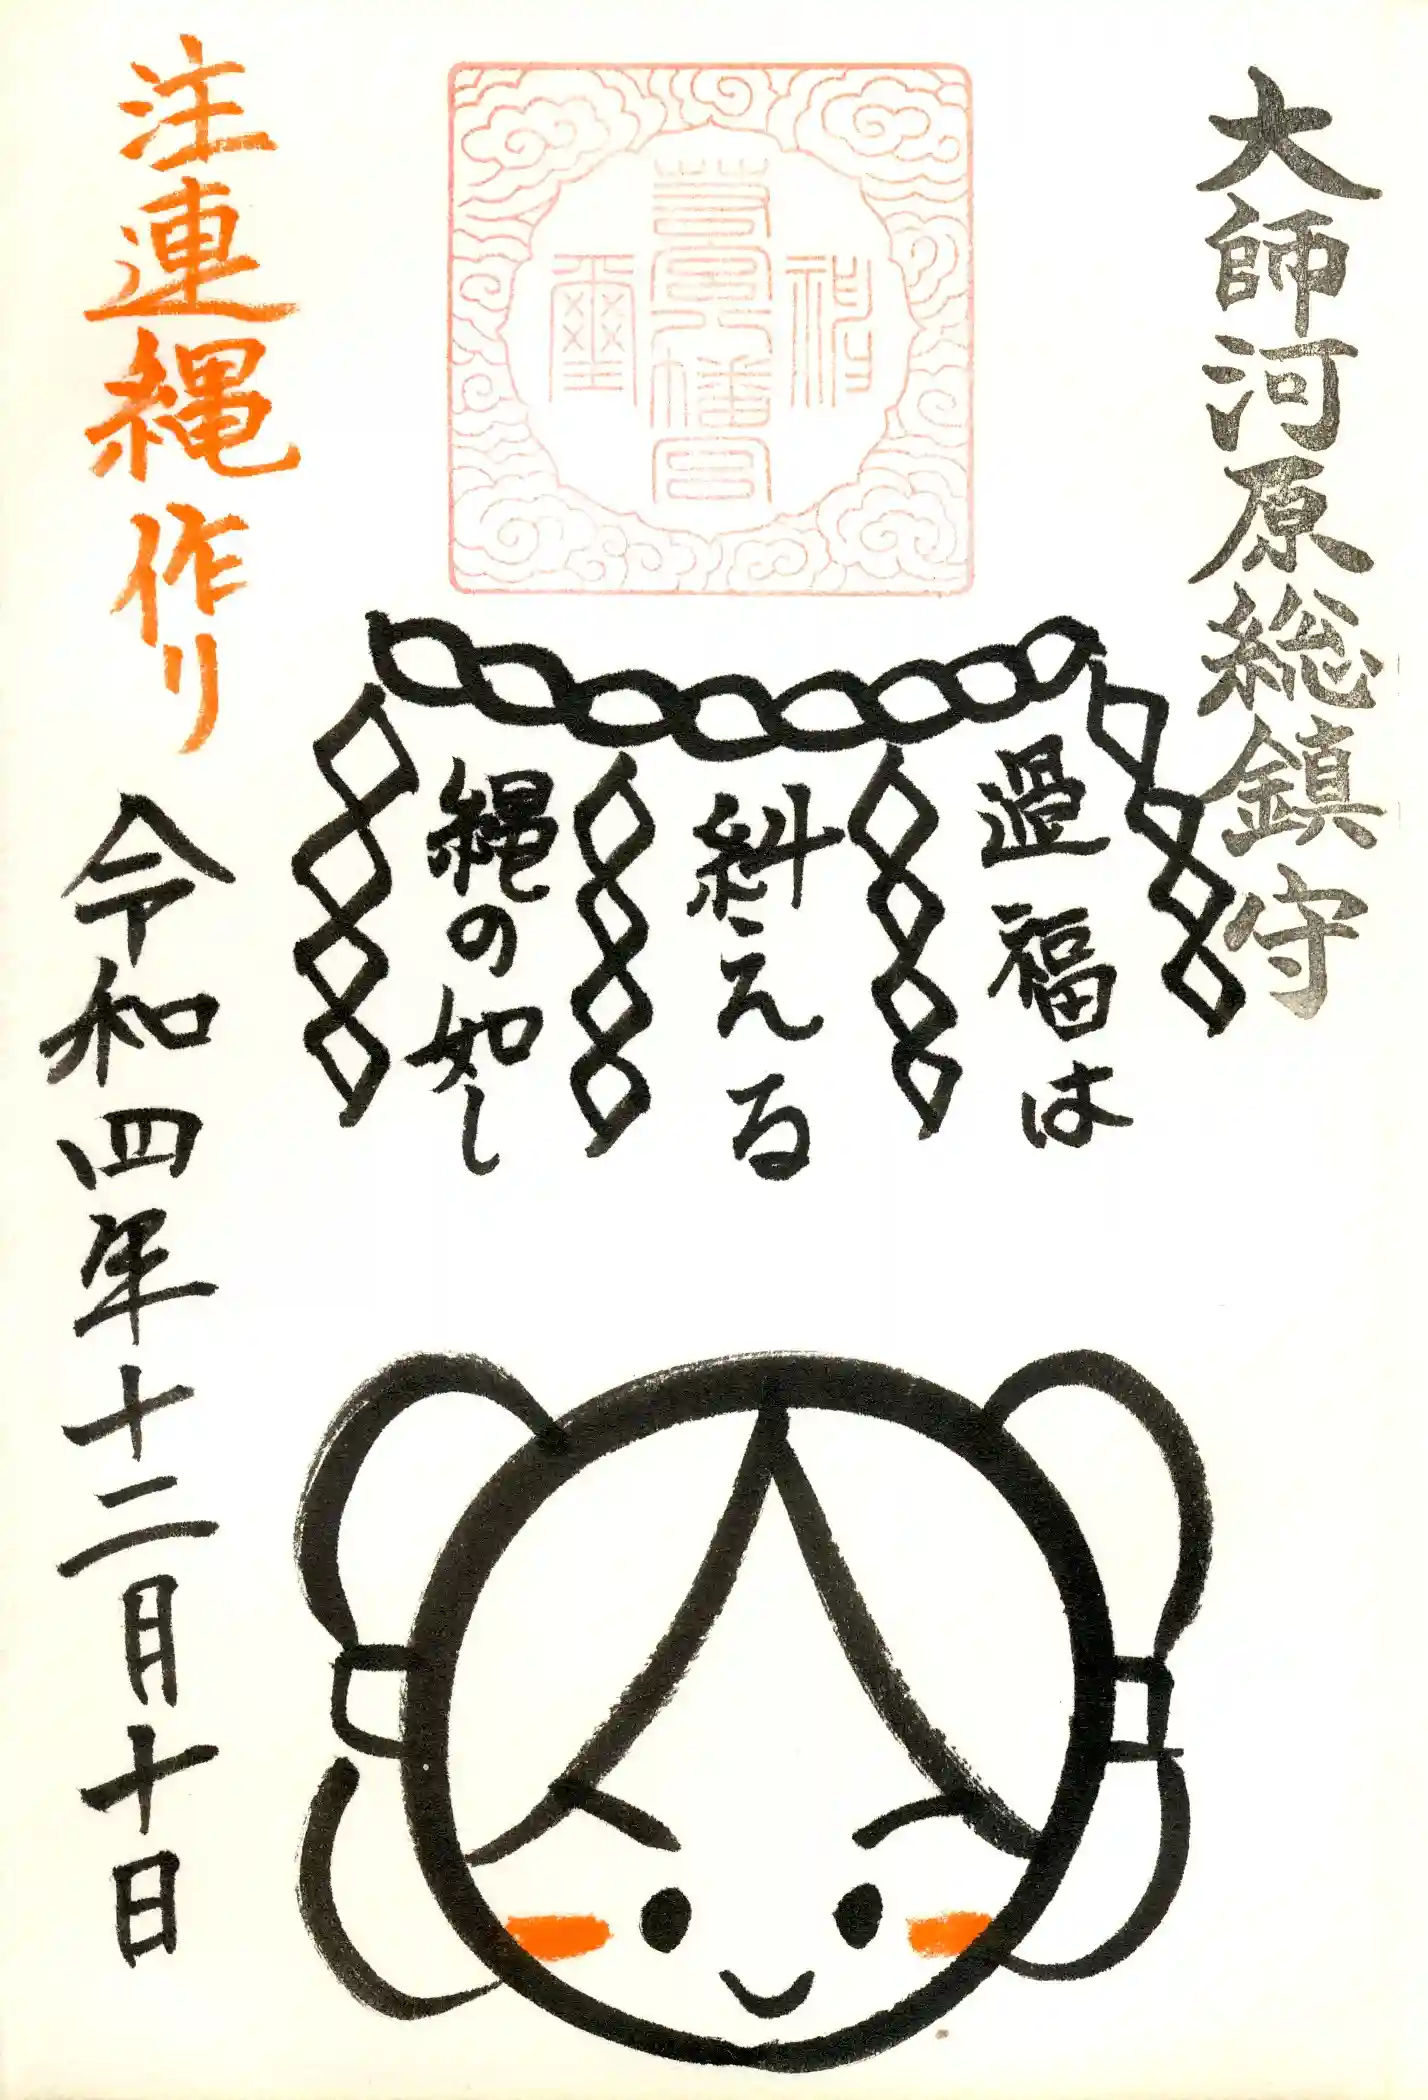 大師河原総鎮守
神
若宮八幡宮
璽
過福は
糾える
縄の如し
注連縄作り
令和四年十二月十日